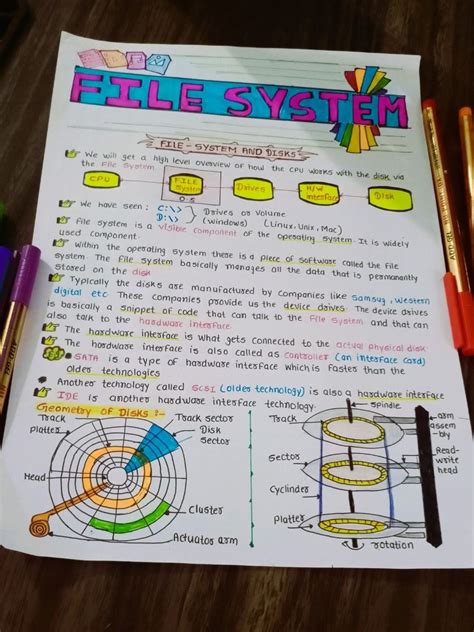 FILE SYSTEM
FILE-SYSTEM AND DISKS
We will get a high level overview of how the CPU works with the disk via
the File System.
CPU FILE System Drives H/W interface Disk
O.S
We have seen: C:\> Drives or Volume
D:\> (Windows) (Linux, Unix, Mac)
File system is a visible component of the operating System. It is widely
used component
Within the operating system there is a piece of software called the file
system. The file system basically manages all the data that is permanently
stored on the disk
Typically the disks are manufactured by Companies like Samsug, Western
digital etc These companies provide us the device drives. The device drives
is basically a snippet of code that can talk to the File system and that can
also talk to the hardware interface.
The hardware interface is what gets connected to the actual physical disk
The hardware interface is also called as Controller (an interface card)
SATA is a type of hardware interface which is faster than the
older technologies
Another technology called SCSI (older technology) is also a hardware interface
IDE is another hardware interface technology.
Geometry of Disks :-
Track
platter
Head
Track sector
Disk
sector
Cluster
Actuator arm
Spindle
Track
Sector
Cylinder
Platter
arm
assem
-bly
Read-
write
head
rotation